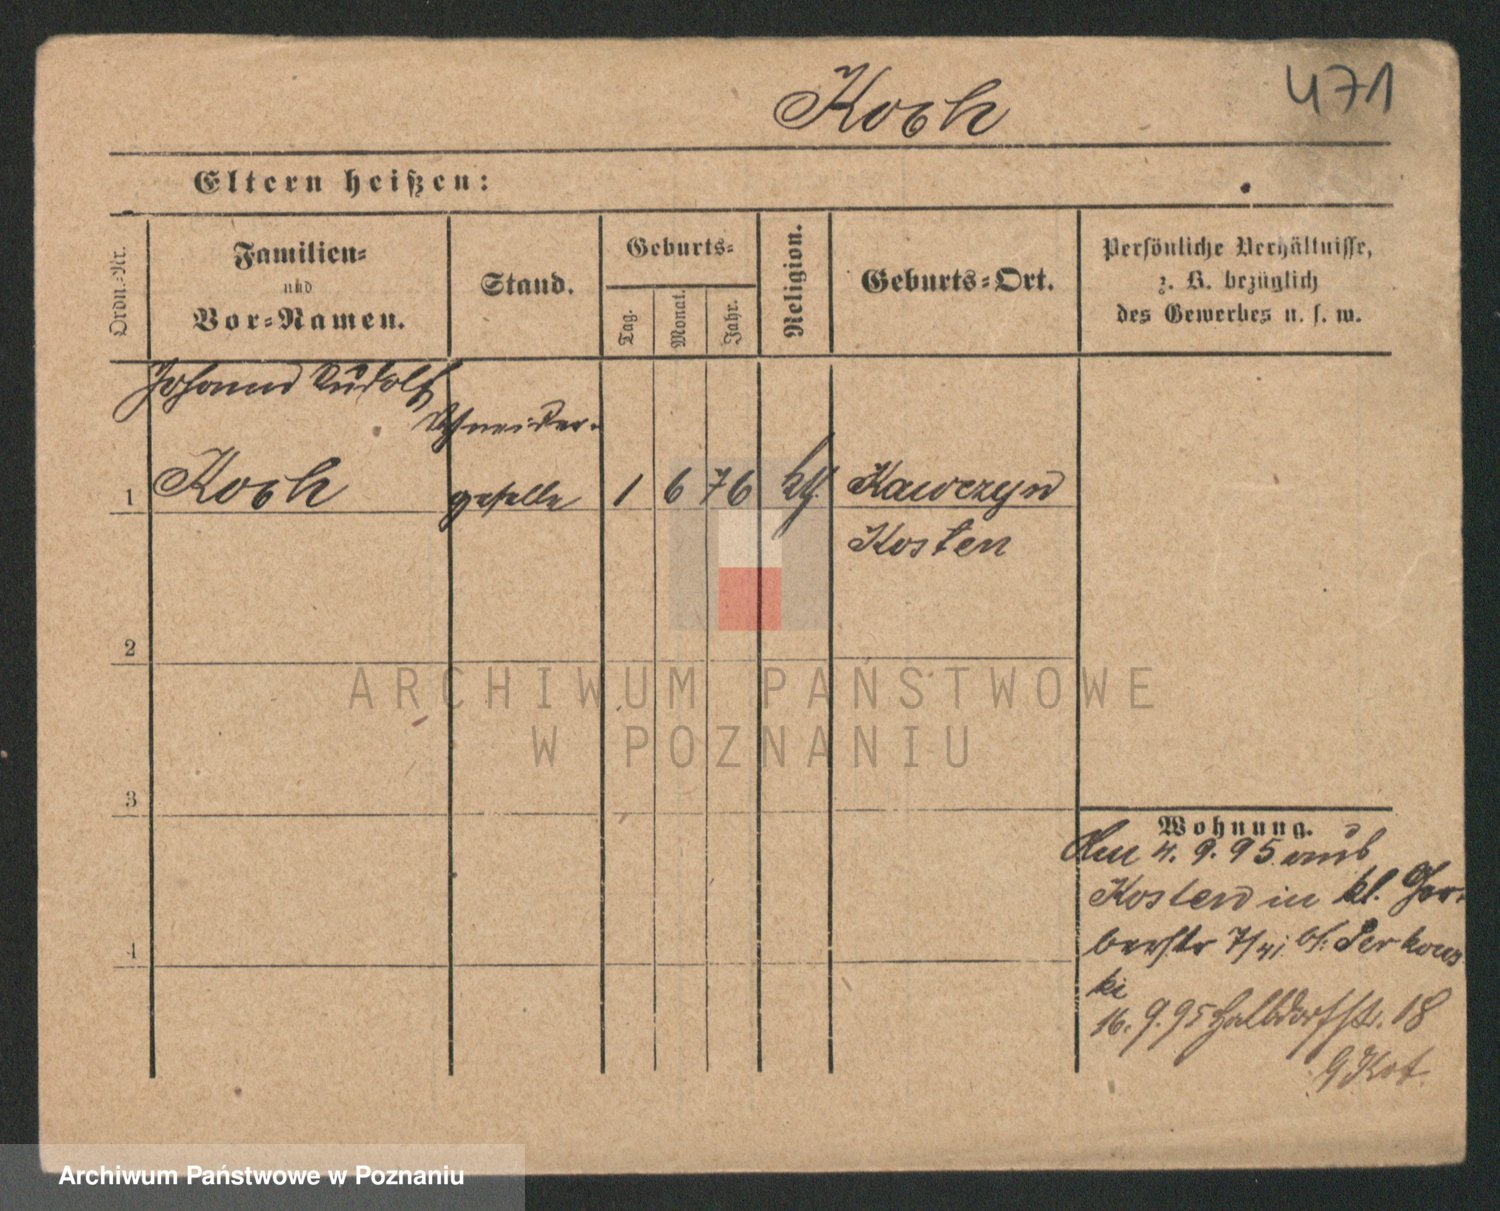 Koch
471
Eltern heißen:
Ordn.-Nr.
Familien-
und
Vor-Namen.
Stand.
Geburts-
Tag.
Monat.
Jahr.
Religion.
Geburts-Ort.
Persönliche Verhältnisse,
z. B. bezüglich
des Gewerbes u. s. w.
Johann Rudolf
Schneider-
1 Koch geselle 1 6 76 kth. Kawczyn
Kosten
2
3
4
Wohnung.
Den 4. 9. 95 aus
Kosten in kl. Ger-
berstr 7/41 b.
ki
16. 9. 95 Halbdorfstr. 18
ARCHIWUM PAŃSTWOWE
W POZNANIU
Archiwum Państwowe w Poznaniu